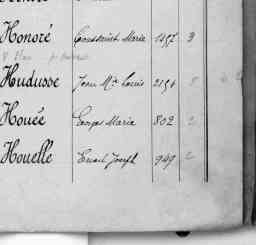 Honoré Toussaint Marie 1457 3
Hudusse Jean Mie Louis 2154 8
Houée Georges Marie 802 2
Houelle Ernest Joseph 949 2